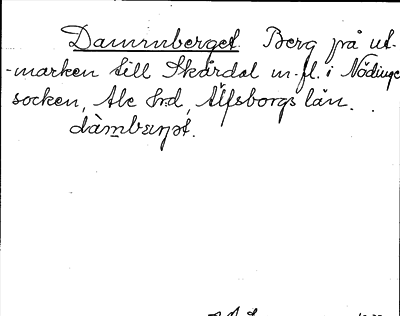 Dammberget. Berg på ut-
-marken till Skårdal m. fl. i Nödinge
socken, Ale hrd, Älfsborgs län.
dàmbærjət.